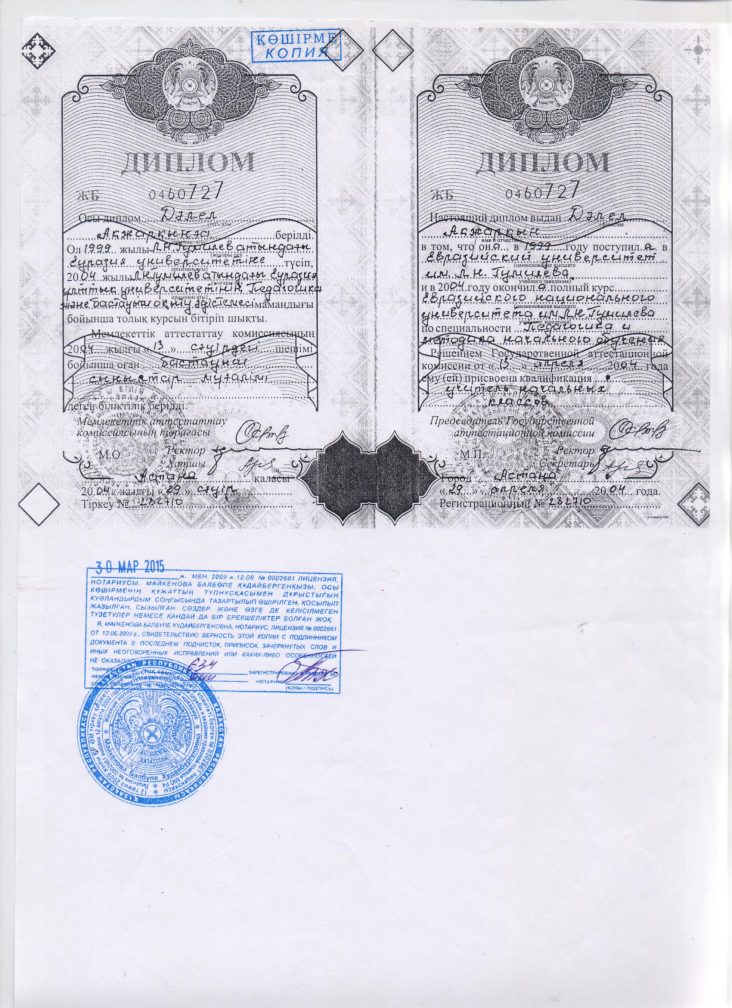 КӨШІРМЕ
КОПИЯ
ДИПЛОМ
ЖБ 0460727
Осы диплом Дәлел
Ақжарқынға берілді.
Ол 1999 жылы Л.Н.Гумилев атындағы
Еуразия университетіне түсіп,
2004 жылы Л.Н.Гумилев атындағы Еуразия
ұлттық университетінің Педагогика
және бастауыш оқыту әдістемесі мамандығы
бойынша толық курсын бітіріп шықты.
Мемлекеттік аттестаттау комиссиясының
2004 жылғы «13» сәуірдегі шешімі
бойынша оған бастауыш
сыныптар мұғалімі
деген біліктілік берілді.
Мемлекеттік аттестаттау
комиссиясының төрағасы
М.О. Ректор
Хатшы
Астана қаласы
2004 жылғы «29» сәуір
Тіркеу №
ДИПЛОМ
ЖБ 0460727
Настоящий диплом выдан Дәлел
Ақжарқын
в том, что она в 1999 году поступила в
Евразийский университет
им. Л.Н. Гумилева
и в 2004 году окончила полный курс
Евразийского национального
университета им. Л.Н. Гумилева
по специальности Педагогика и
методика начального обучения
Решением Государственной аттестационной
комиссии от «13» апреля 2004 года
ему (ей) присвоена квалификация
учитель начальных
классов
Председатель Государственной
аттестационной комиссии
М.П. Ректор
Секретарь
Город Астана
«29» апреля 2004 года.
Регистрационный №
30 МАР 2015
ж. МЕН. 2009 ж. 12.08. № 0002661 ЛИЦЕНЗИЯ,
НОТАРИУСЫ МАЙКЕНОВА БАЛБӨПЕ ҚҰДАЙБЕРГЕНҚЫЗЫ, ОСЫ
КӨШІРМЕНІҢ ҚҰЖАТТЫҢ ТҮПНҰСҚАСЫМЕН ДҰРЫСТЫҒЫН
КУӘЛАНДЫРДЫМ СОҢҒЫСЫНДА ТАЗАРТЫЛЫП ӨШІРІЛГЕН, ҚОСЫЛЫП
ЖАЗЫЛҒАН, СЫЗЫЛҒАН СӨЗДЕР ЖӘНЕ ӨЗГЕ ДЕ КЕЛІСІЛМЕГЕН
ТҮЗЕТУЛЕР НЕМЕСЕ ҚАНДАЙ ДА БІР ЕРЕКШЕЛІКТЕР БОЛҒАН ЖОҚ.
Я, МАЙКЕНОВА БАЛБУПЕ ХУДАЙБЕРГЕНОВНА, НОТАРИУС, ЛИЦЕНЗИЯ № 0002661
ОТ 12.08.2009 г., СВИДЕТЕЛЬСТВУЮ ВЕРНОСТЬ ЭТОЙ КОПИИ С ПОДЛИННИКОМ
ДОКУМЕНТА В ПОСЛЕДНЕМ ПОДЧИСТОК, ПРИПИСОК, ЗАЧЕРКНУТЫХ СЛОВ И
ИНЫХ НЕОГОВОРЕННЫХ ИСПРАВЛЕНИЙ ИЛИ КАКИХ-ЛИБО ОСОБЕННОСТЕЙ
НЕ ОКАЗАЛОСЬ
ЗАРЕГИСТРИРОВАНО
НОТАРИУС
(ҚОЛЫ / ПОДПИСЬ)
ҚАЗАҚСТАН РЕСПУБЛИКАСЫ